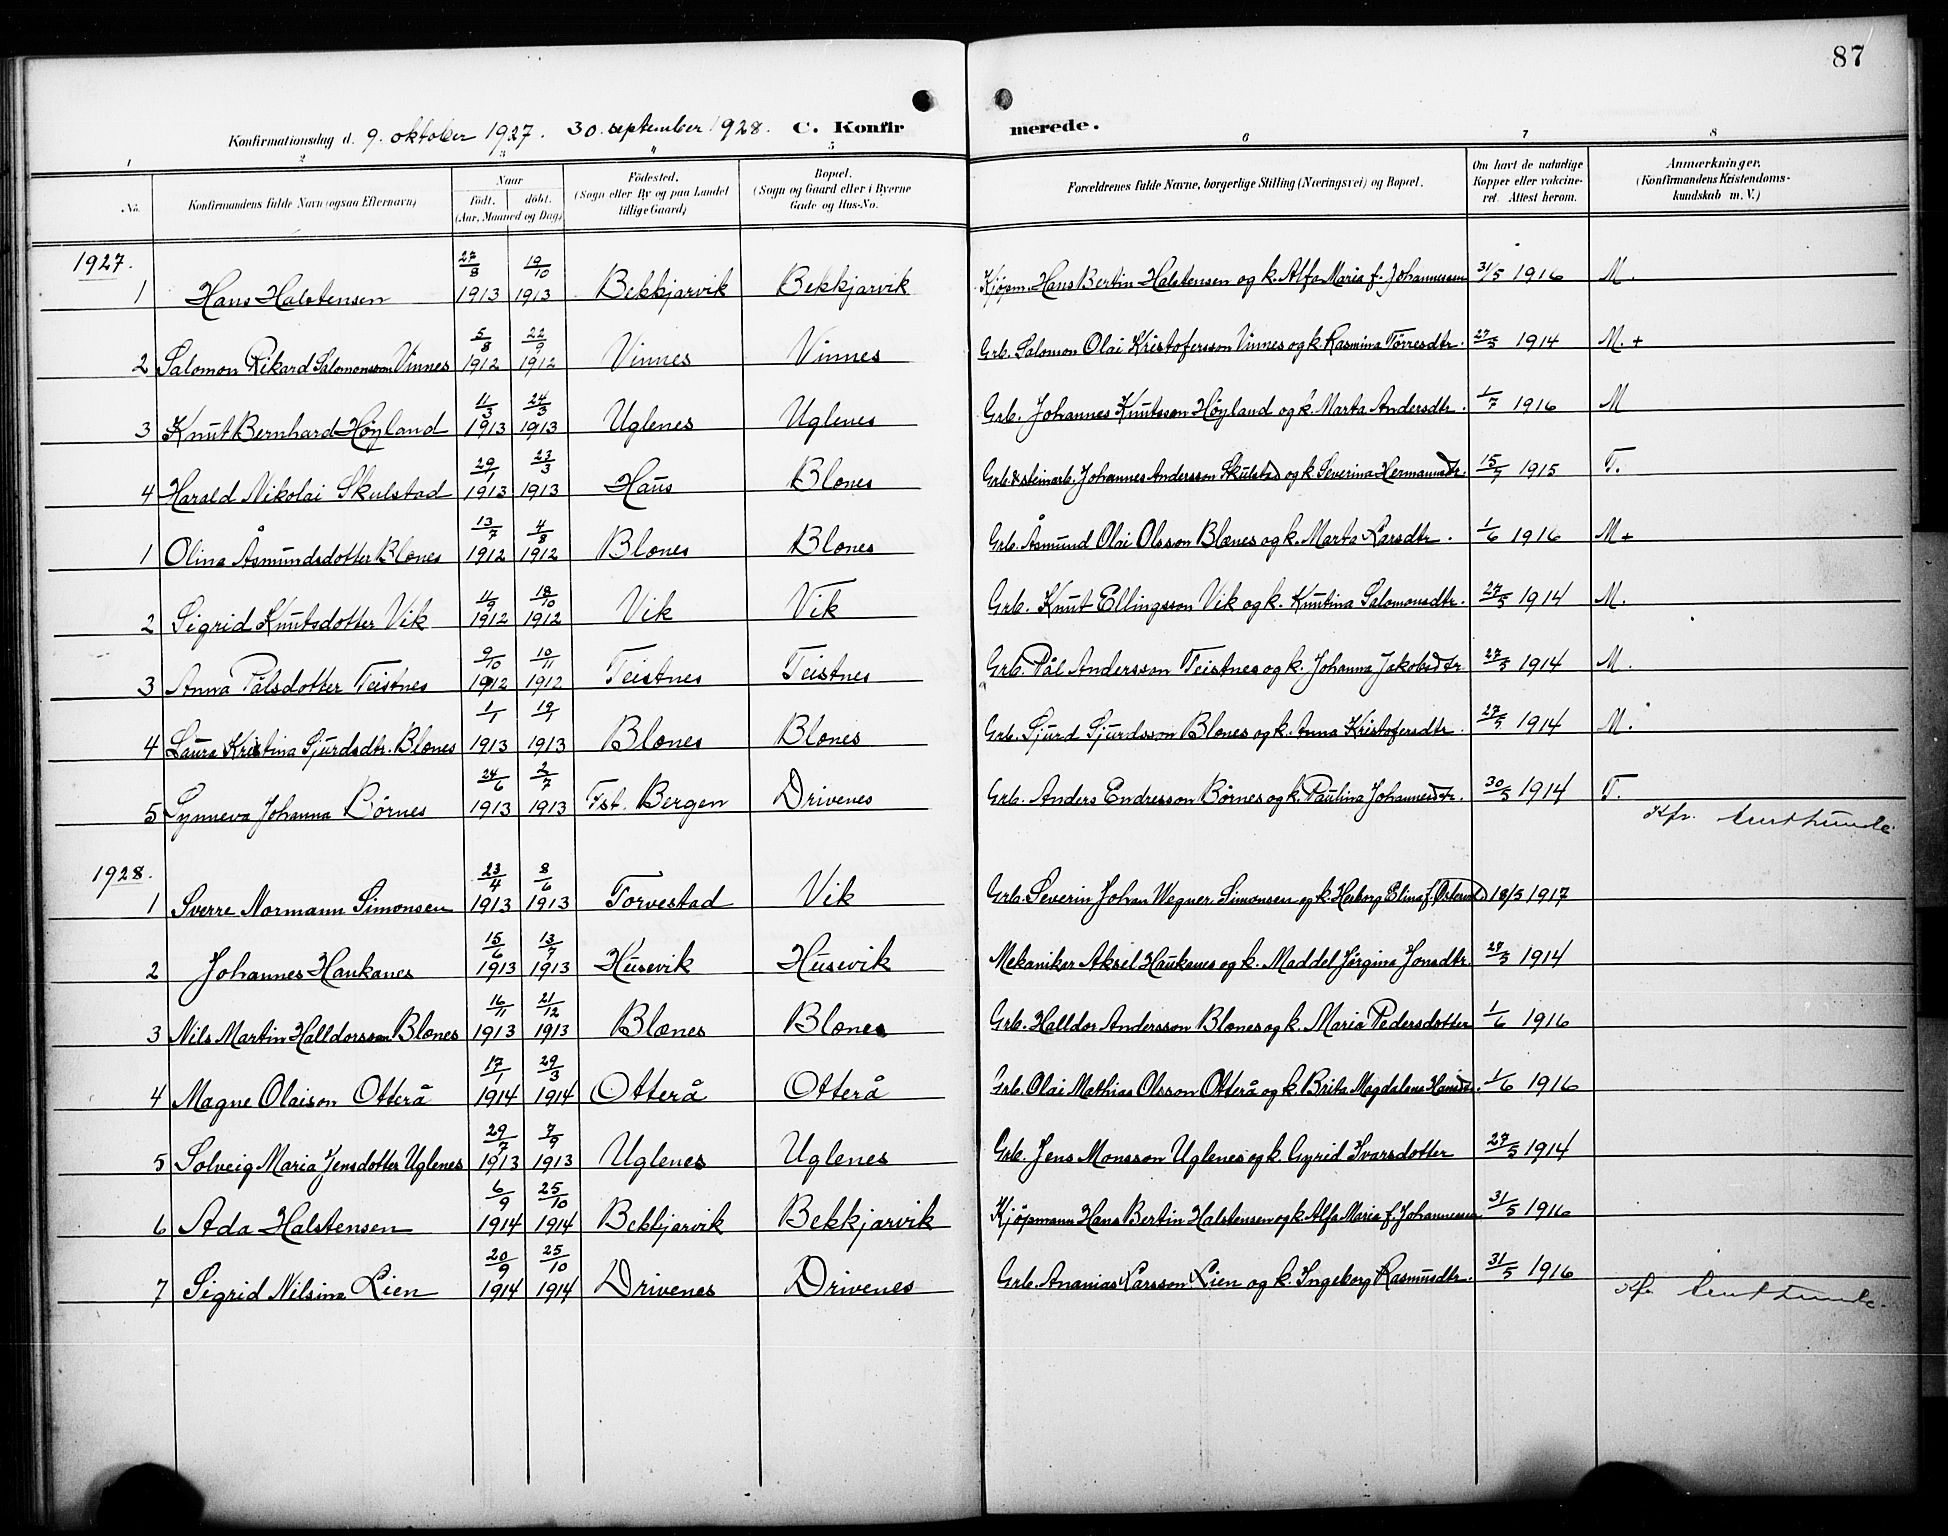 87
Konfirmationsdag d. 9. oktober 1927. 30. september 1928. C. Konfirmerede.
1 2 3 4 5 6 7 8
No. Konfirmandens fulde Navn (ogsaa Efternavn) Naar født. døbt. (Aar, Maaned og Dag) Fødested. (Sogn eller By og paa Landet tillige Gaard) Bopæl. (Sogn og Gaard eller i Byerne Gade og Hus-No. Forældrenes fulde Navne, borgerlige Stilling (Næringsvei) og Bopæl. Om havt de naturlige Kopper eller vaccineret. Attest herom. Anmærkninger. (Konfirmandens Kristendomskundskab m. V.)
1927.
1 Hans Halstensen 27/8 1913 19/10 1913 Bekkjarvik Bekkjarvik Kjøpm. Hans Bertin Halstensen og k. Alfa Maria f. Johannessen 31/5 1916 M.
2 Salomon Rikard Salomonsson Vinnes 5/8 1912 22/9 1912 Vinnes Vinnes Grb. Salomon Olai Kristofersson Vinnes og k. Rasmina Tørresdtr. 27/5 1914 M. +
3 Knut Bernhard Høyland 11/3 1913 24/3 1913 Uglenes Uglenes Grb. Johannes Knutsson Høyland og k. Marta Andersdtr. 1/7 1916 M
4 Harald Nikolai Skulstad 29/1 1913 23/3 1913 Haus Blænes Grb. & steinarb. Johannes Andersson Skulstad og k. Severina Hermannsdtr. 15/7 1915 T.
1 Olina Åsmundsdotter Blænes 13/7 1912 4/8 1912 Blænes Blænes Grb. Åsmund Olai Olsson Blænes og k. Marta Larsdtr. 1/6 1916 M+
2 Sigrid Knutsdotter Vik 11/9 1912 18/10 1912 Vik Vik Grb. Knut Ellingsson Vik og k. Knutina Salomonsdtr. 27/5 1914 M.
3 Anna Pålsdotter Teistnes 9/10 1912 10/11 1912 Teistnes Teistnes Grb. Pål Andersson Teistnes og k. Johanna Jakobsdtr 27/5 1914 M.
4 Laura Kristina Sjurdsdtr. Blænes 1/1 1913 19/1 1913 Blænes Blænes Grb. Sjurd Sjurdsson Blænes og k. Anna Kristofersdtr. 27/5 1914 M.
5 Synneva Johanna Børnes 24/6 1913 2/7 1913 Fst. Bergen Drivenes Grb. Anders Endresson Børnes og k. Paulina Johannesdtr. 30/5 1914 T.
Kfr.
1928.
1 Sverre Normann Simonsen 23/4 1913 8/6 1913 Torvestad Vik Grb. Severin Johan Wegner Simonsen og k. Herborg Elina f. 18/5 1917
2 Johannes Haukanes 15/6 1913 13/7 1913 Husevik Husevik Mekaniker Aksel Haukanes og k. Maddel Jørgina Jonsdtr. 27/5 1914
3 Nils Martin Halldorsson Blænes 16/11 1913 21/12 1913 Blænes Blænes Grb. Halldor Andersson Blænes og k. Maria Pedersdotter 1/6 1916
4 Magne Olaison Otterå 17/1 1914 29/3 1914 Otterå Otterå Grb. Olai Mathias Olsson Otterå og k. Brita Magdalena Hansdtr. 1/6 1916
5 Solveig Maria Jensdotter Uglenes 29/7 1913 7/9 1913 Uglenes Uglenes Grb. Jens Monsson Uglenes og k. Gyrid Ivarsdotter 27/5 1914
6 Ada Halstensen 6/9 1914 25/10 1914 Bekkjarvik Bekkjarvik Kjøpmann Hans Bertin Halstensen og k. Alfa Maria f. Johannessen 31/5 1916
7 Sigrid Nilsina Lien 20/9 1914 25/10 1914 Drivenes Drivenes Grb. Ananias Larsson Lien og k. Ingeborg Rasmusdtr. 31/5 1916
Kfr.